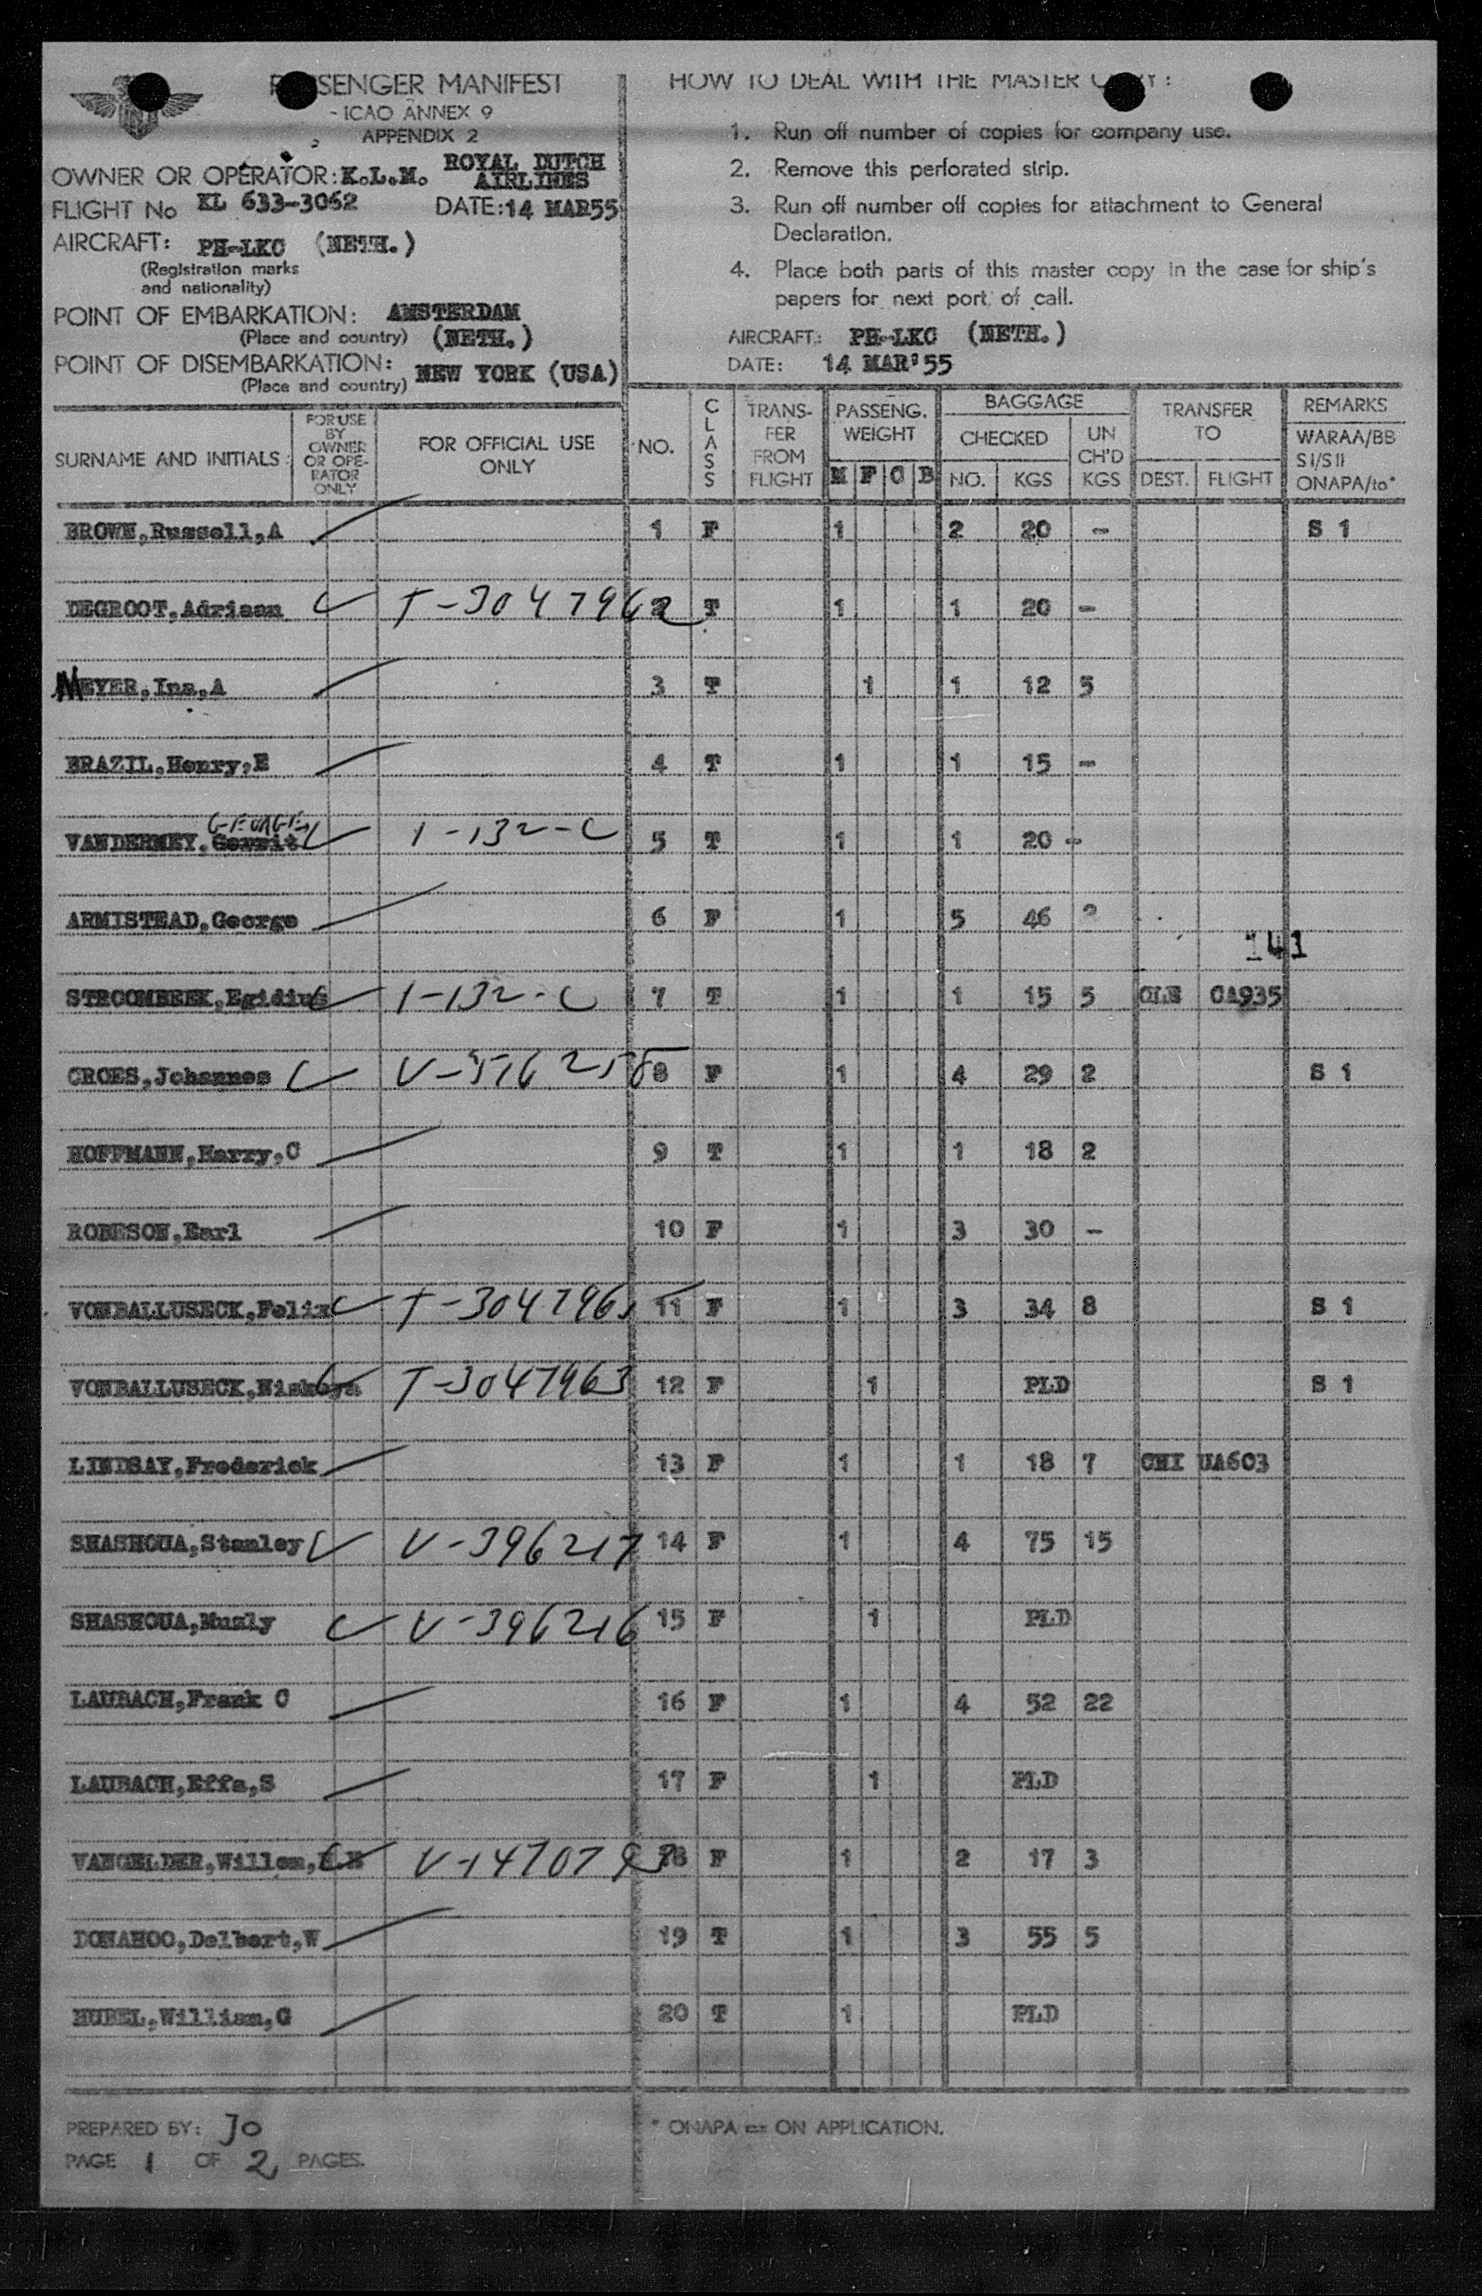 PASSENGER MANIFEST
- ICAO ANNEX 9
APPENDIX 2
OWNER OR OPERATOR: K.L.M. ROYAL DUTCH AIRLINES
FLIGHT No KL 633-3062 DATE: 14 MAR55
AIRCRAFT: PH-LKC (NETH.)
(Registration marks
and nationality)
POINT OF EMBARKATION: AMSTERDAM
(Place and country) (NETH.)
POINT OF DISEMBARKATION: NEW YORK (USA)
(Place and country)
HOW TO DEAL WITH THE MASTER COPY:
1. Run off number of copies for company use.
2. Remove this perforated strip.
3. Run off number off copies for attachment to General
Declaration.
4. Place both parts of this master copy in the case for ship's
papers for next port of call.
AIRCRAFT: PH-LKC (NETH.)
DATE: 14 MAR'55
SURNAME AND INITIALS: FOR USE BY OWNER OR OPE-RATOR ONLY FOR OFFICIAL USE ONLY NO. CLASS TRANS-FER FROM FLIGHT PASSENG. WEIGHT M F C B BAGGAGE CHECKED NO. KGS UN CH'D KGS TRANSFER TO DEST. FLIGHT REMARKS WARAA/BB SI/SII ONAPA/to*
BROWN,Russell,A 1 F 1 2 20 - S 1
DEGROOT,Adriaan T-3047962 2 T 1 1 20 -
MEYER,Ina,A 3 T 1 1 12 5
BRAZIL,Henry,E 4 T 1 1 15 -
GEORGE
VANDERMEY,Gerrit 1-132-C 5 T 1 1 20 -
ARMISTEAD,George 6 F 1 5 46 2
141
STROOMBEEK,Egidius 1-132-C 7 T 1 1 15 5 CLE CA935
CROES,Johannes V-516258 8 F 1 4 29 2 S 1
HOFFMANN,Harry,C 9 T 1 1 18 2
ROBESON,Earl 10 F 1 3 30 -
VONBALLUSECK,Felix T-3047965 11 F 1 3 34 8 S 1
VONBALLUSECK, T-3047963 12 F 1 PLD S 1
LINDSAY,Frederick 13 F 1 1 18 7 CHI UA603
SHASHOUA,Stanley V-396217 14 F 1 4 75 15
SHASHOUA,Muzly V-396216 15 F 1 PLD
LAUBACH,Frank C 16 F 1 4 52 22
LAUBACH,Effa,S 17 F 1 PLD
VANGELDER,Willem, V-1470793 18 F 1 2 17 3
DONAHOO,Delbert,W 19 T 1 3 55 5
HUBEL,William,G 20 T 1 PLD
PREPARED BY: Jo
PAGE 1 OF 2 PAGES.
* ONAPA = ON APPLICATION.